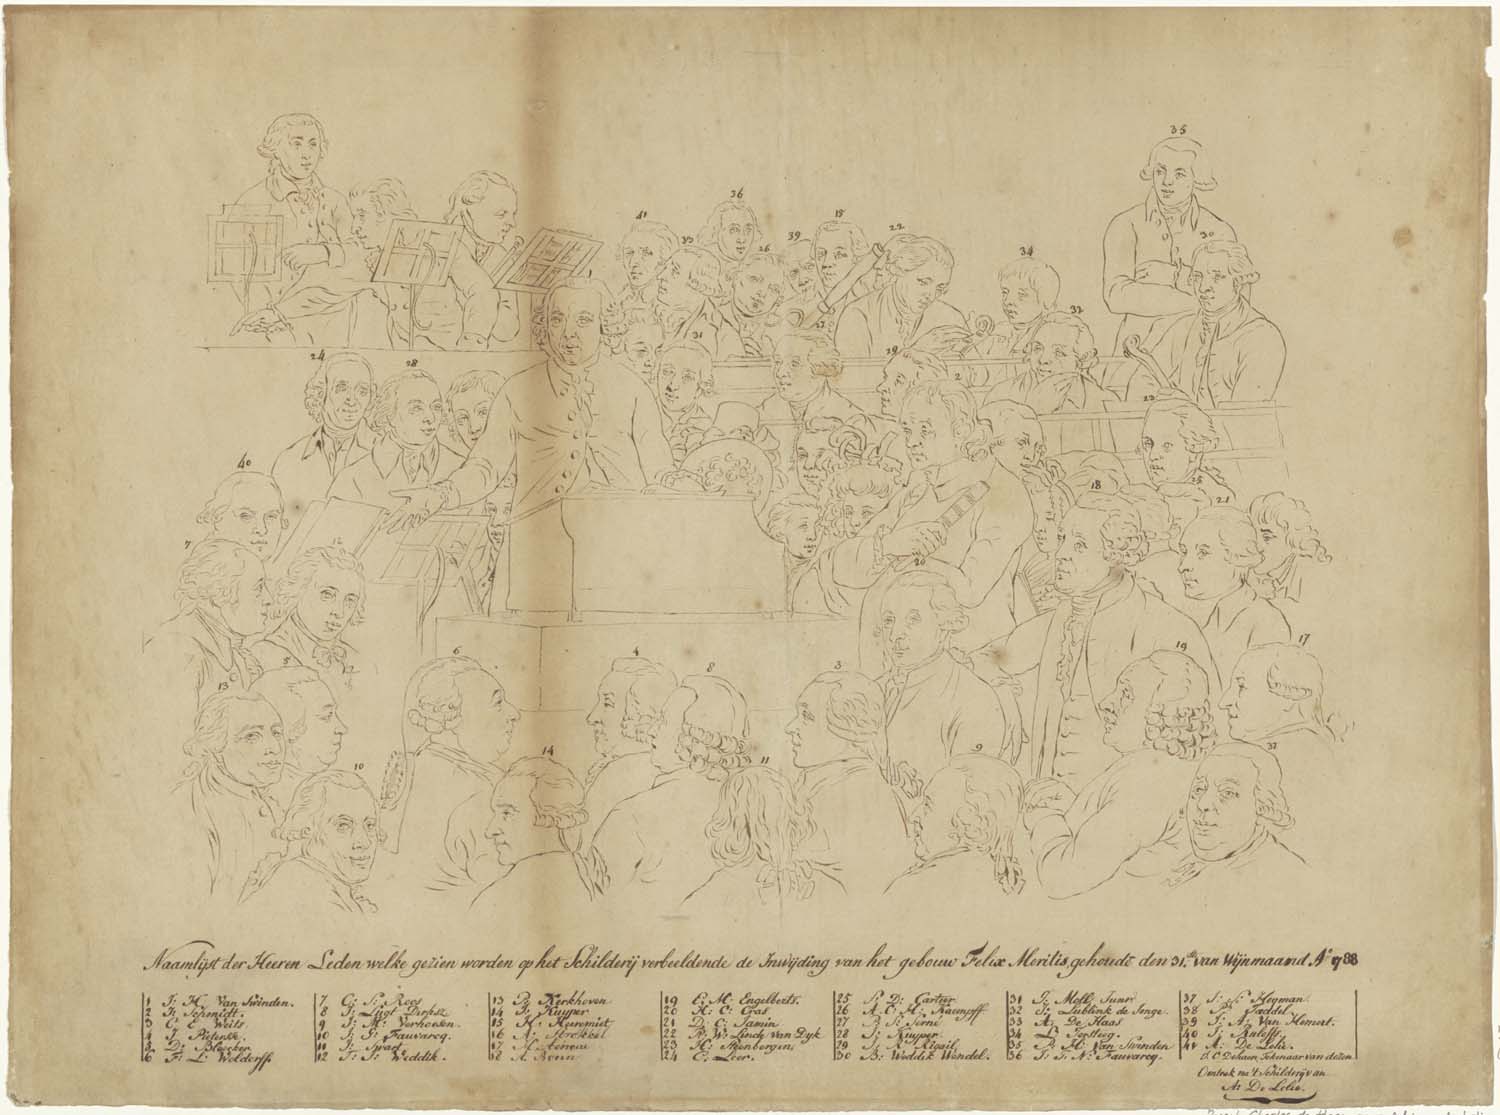 35
36
41
15
22
39
30
26
34
32
31
24
28
29
2
23
40
18
25
21
7
1
20
6
4
8
3
19
17
5
13
14
9
37
10
11
Naamlijst der Heeren Leden welke gezien worden op het Schilderij verbeeldende de Inwijding van het gebouw Felix Meritis gehoude den 31.ste van Wijnmaand Ao. 1788
1 J: H: Van Swinden.
2 F: Schmidt.
3 C: E: Weits
4 J: Pieterse.
5 D: Bleecker
6 F: L: Woldorff
7 G: S: Roos
8 J: Ligt Dirksz
9 J: M: Verhoesen.
10 J: G: Fauvarcq.
11 J: Spaal
12 J: J: Weddik.
13 P: Kerkhoven
14 F: Kuyper
15 H: Heeremiet
16 A: Strekkel
18 A: Bonn
19 E: M: Engelberts.
20 H: C: Cras
21 D: C: Jamin
22 R: W: Linch van Dyk
23 H: Arenbergen.
24 E: Leer.
25 P: D: Cartier
26 A: C: H: Kaempff
27 P: S: Ferné
28 J: Kuyper
29 J: R: Rigail.
30 B: Weddik Wendel.
31 J: Moll: Junr.
32 J: Lublink de Jonge.
33 A: De Haas
35 P: H: Van Swinden
36 J: J: N: Fauvarcq.
37 J: S: Hegman
38 P: Paddel
39 J: A: Van Hemert.
41 A: De Lelie.
Omtrek na 't Schilderij van
A: De Lelie.